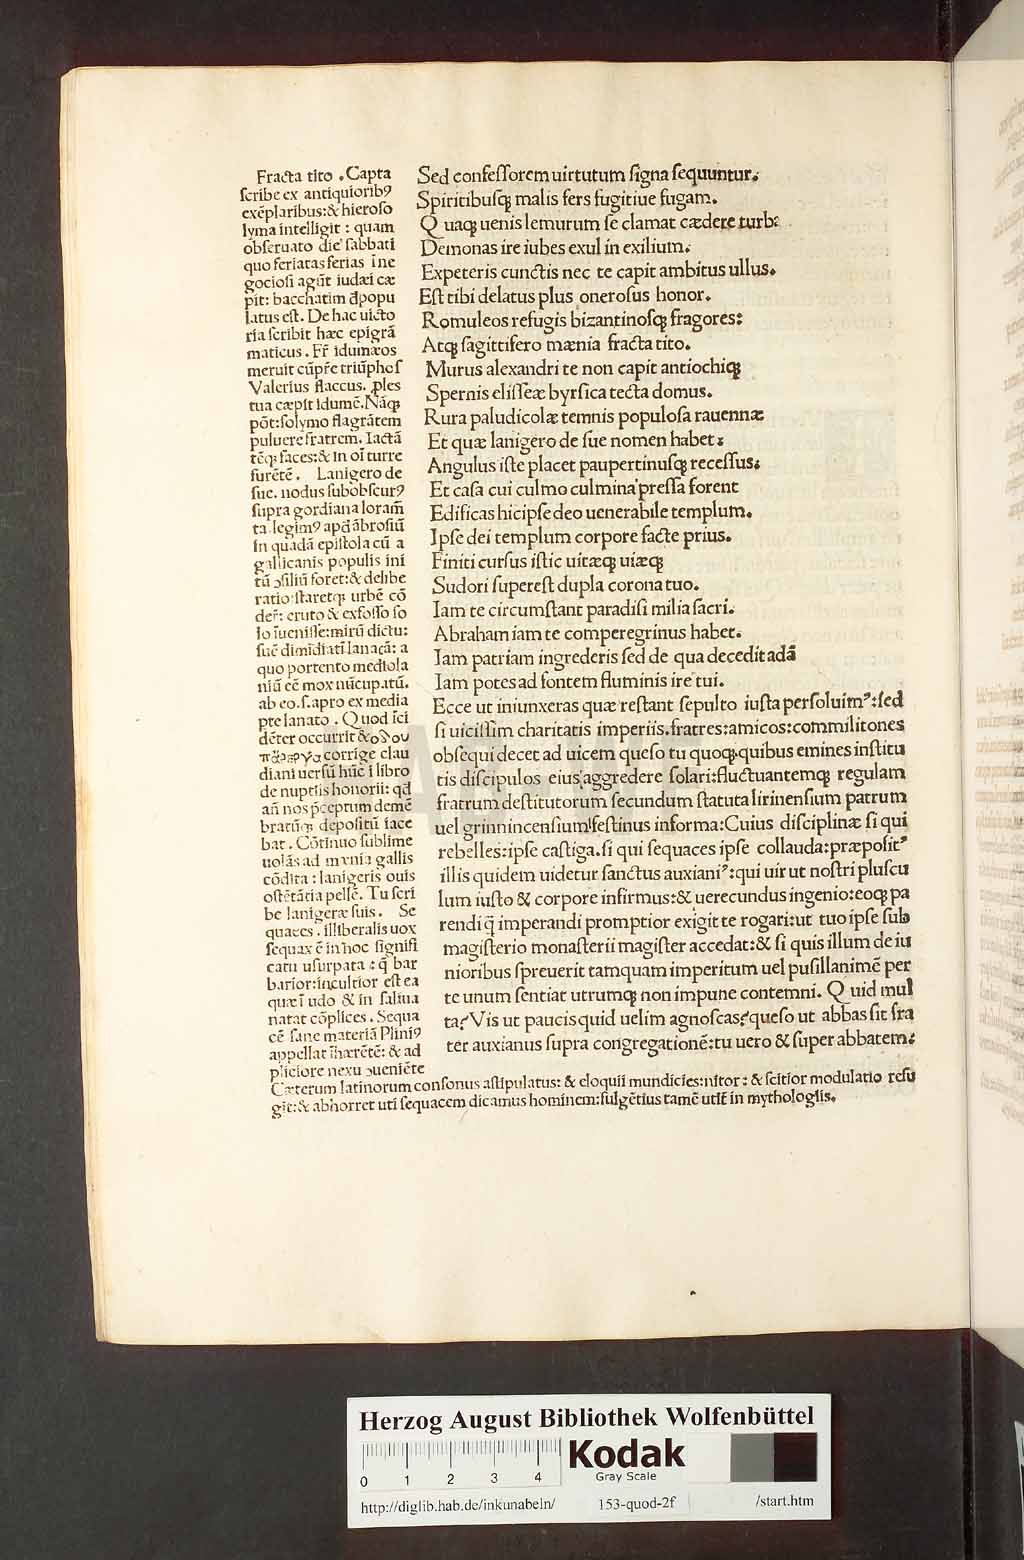 Fracta tito . Capta
scribe ex antiquioribꝰ
exẽplaribus:& hieroso
lyma intelligit : quam
obseruato die sabbati
quo feriatas ferias ĩ ne
gociosi agũt iudæi cæ
pit: bacchatim
latus est. De hac uicto
ria scribit hæc epigrã
maticus . Fr̃ idumæos
meruit cũpr̃e triũphos
Valerius flaccus.
tua cæpit idumẽ. Nãqꝫ
põt: solymo flagrãtem
puluere fratrem. Iactã
tẽqꝫ faces:& in oĩ turre
furẽtẽ . Lanigero de
sue. nodus subobscurꝰ
supra gordiana loram̃
ta. legimꝰ apd ãbrosiũ
in quadã epistola cũ a
gallicanis populis ini
tũ ↄsiliũ foret:& delibe
ratio staretqꝫ urbẽ cõ
der̃: eruto & exfosso so
lo ĩuenisse:mirũ dictu:
suẽ dimidiatĩ lanatã: a
quo portento mediola
niũ cẽ mox nũcupatũ.
ab eo .s. apro ex media
pte lanato . Quod ĩci
dẽter occurrit &
corrige clau
diani uersũ hũc ĩ libro
de nuptiis honorii: qd
añ nos p̃ceptum demẽ
bratũqꝫ depositũ iace
bat . Cõtinuo sublime
uolãs ad mœnia gallis
cõdita : lanigeris ouis
ostẽtãtia pellẽ. Tu scri
be lanigeræ suis. Se
quaces . illiberalis uox
sequax ẽ in hoc signifi
catu usurpata : q̃ bar
barior:incultior est ea
quæ ĩ udo & in saliua
natat cõplices . Sequa
cẽ sane materiã Pliniꝰ
appellat ĩhærẽtẽ: & ad
pliciore nexu ↄueniẽte
Cæterum latinorum consonus astipulatus: & eloquii mundicies:nitor : & scitior modulatio resu
git:& abhorret uti sequacem dicamus hominem:fulgẽtius tamẽ utit̃ in mythologiis.
Sed confessorem uirtutum signa sequuntur.
Spiritibusqꝫ malis fers fugitiue fugam.
Quaqꝫ uenis lemurum se clamat cædere turba
Demonas ire iubes exul in exilium.
Expeteris cunctis nec te capit ambitus ullus.
Est tibi delatus plus onerosus honor.
Romuleos refugis bizantinosqꝫ fragores:
Atqꝫ sagittifero mænia fracta tito.
Murus alexandri te non capit antiochiqꝫ
Spernis elisseæ byrsica tecta domus.
Rura paludicolæ temnis populosa rauennæ
Et quæ lanigero de sue nomen habet:
Angulus iste placet paupertinusqꝫ recessus:
Et casa cui culmo culmina pressa forent
Edificas hic ipse deo uenerabile templum.
Ipse dei templum corpore facte prius.
Finiti cursus istic uitæqꝫ uiæqꝫ
Sudori superest dupla corona tuo.
Iam te circumstant paradisi milia sacri.
Abraham iam te comperegrinus habet.
Iam patriam ingrederis sed de qua decedit adã
Iam potes ad fontem fluminis ire tui.
Ecce ut iniunxeras quæ restant sepulto iusta persoluimꝰ:sed
si uicissim charitatis imperiis.fratres:amicos:commilitones
obsequi decet ad uicem queso tu quoqꝫ.quibus emines institu
tis discipulos eius aggredere solari:fluctuantemqꝫ regulam
fratrum destitutorum secundum statuta lirinensium patrum
uel grinnincensium festinus informa:Cuius disciplinæ si qui
rebelles:ipse castiga.si qui sequaces ipse collauda:præpositꝰ
illis quidem uidetur sanctus auxianiꝰ:qui uir ut nostri pluscu
lum iusto & corpore infirmus:& uerecundus ingenio:eoqꝫ pa
rendi q̃ imperandi promptior exigit te rogari:ut tuo ipse sub
magisterio monasterii magister accedat:& si quis illum de iu
nioribus spreuerit tamquam imperitum uel pusillanimẽ per
te unum sentiat utrumqꝫ non impune contemni. Quid mul
ta? Vis ut paucis quid uelim agnoscas? queso ut abbas sit fra
ter auxianus supra congregationẽ:tu uero & super abbatem:
Herzog August Bibliothek Wolfenbüttel
0 1 2 3 4
Kodak
Gray Scale
http://diglib.hab.de/inkunabeln/ 153-quod-2f /start.htm